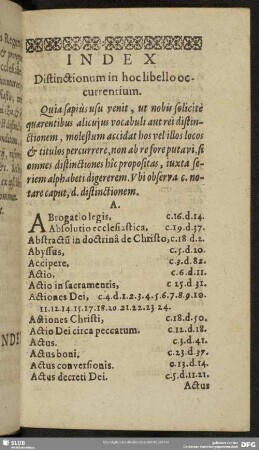 INDEX
Distinctionum in hoc libello oc-
currentium.
Quia sæpius usu venit, ut nobis solicitè
quærentibus alicujus vocabuli aut rei distin-
ctionem, molestum accidat hos vel illos locos
& titulos percurrere, non ab re fore putavi, si
omnes distinctiones hic propositas, iuxta se-
riem alphabeti digererem. Vbi observa c. no-
tare caput, d. distinctionem.
A.
ABrogatio legis, c.16.d.14.
Absolutio ecclesiastica, c.19.d.37.
Abstractū in doctrinâ de Christo, c.18 d.2.
Abyssus, c.5.d.20.
Accipere, c.3.d.82.
Actio, c.6.d.11.
Actio in sacramentis, c 25.d.31.
Actiones Dei, c.4.d.1.2.3.4.5.6.7.8.9.10.
11.12.14.15.17.18.20.21.22.23 24.
Actiones Christi, c.18.d.50.
Actio Dei circa peccatum. c.12.d.18.
Actus. c.3.d.41.
Actus boni, c.23.d.37.
Actus conversionis. c.13.d.14.
Actus decreti Dei. c.5.d.11.21.
Actus
SLUB
DFG